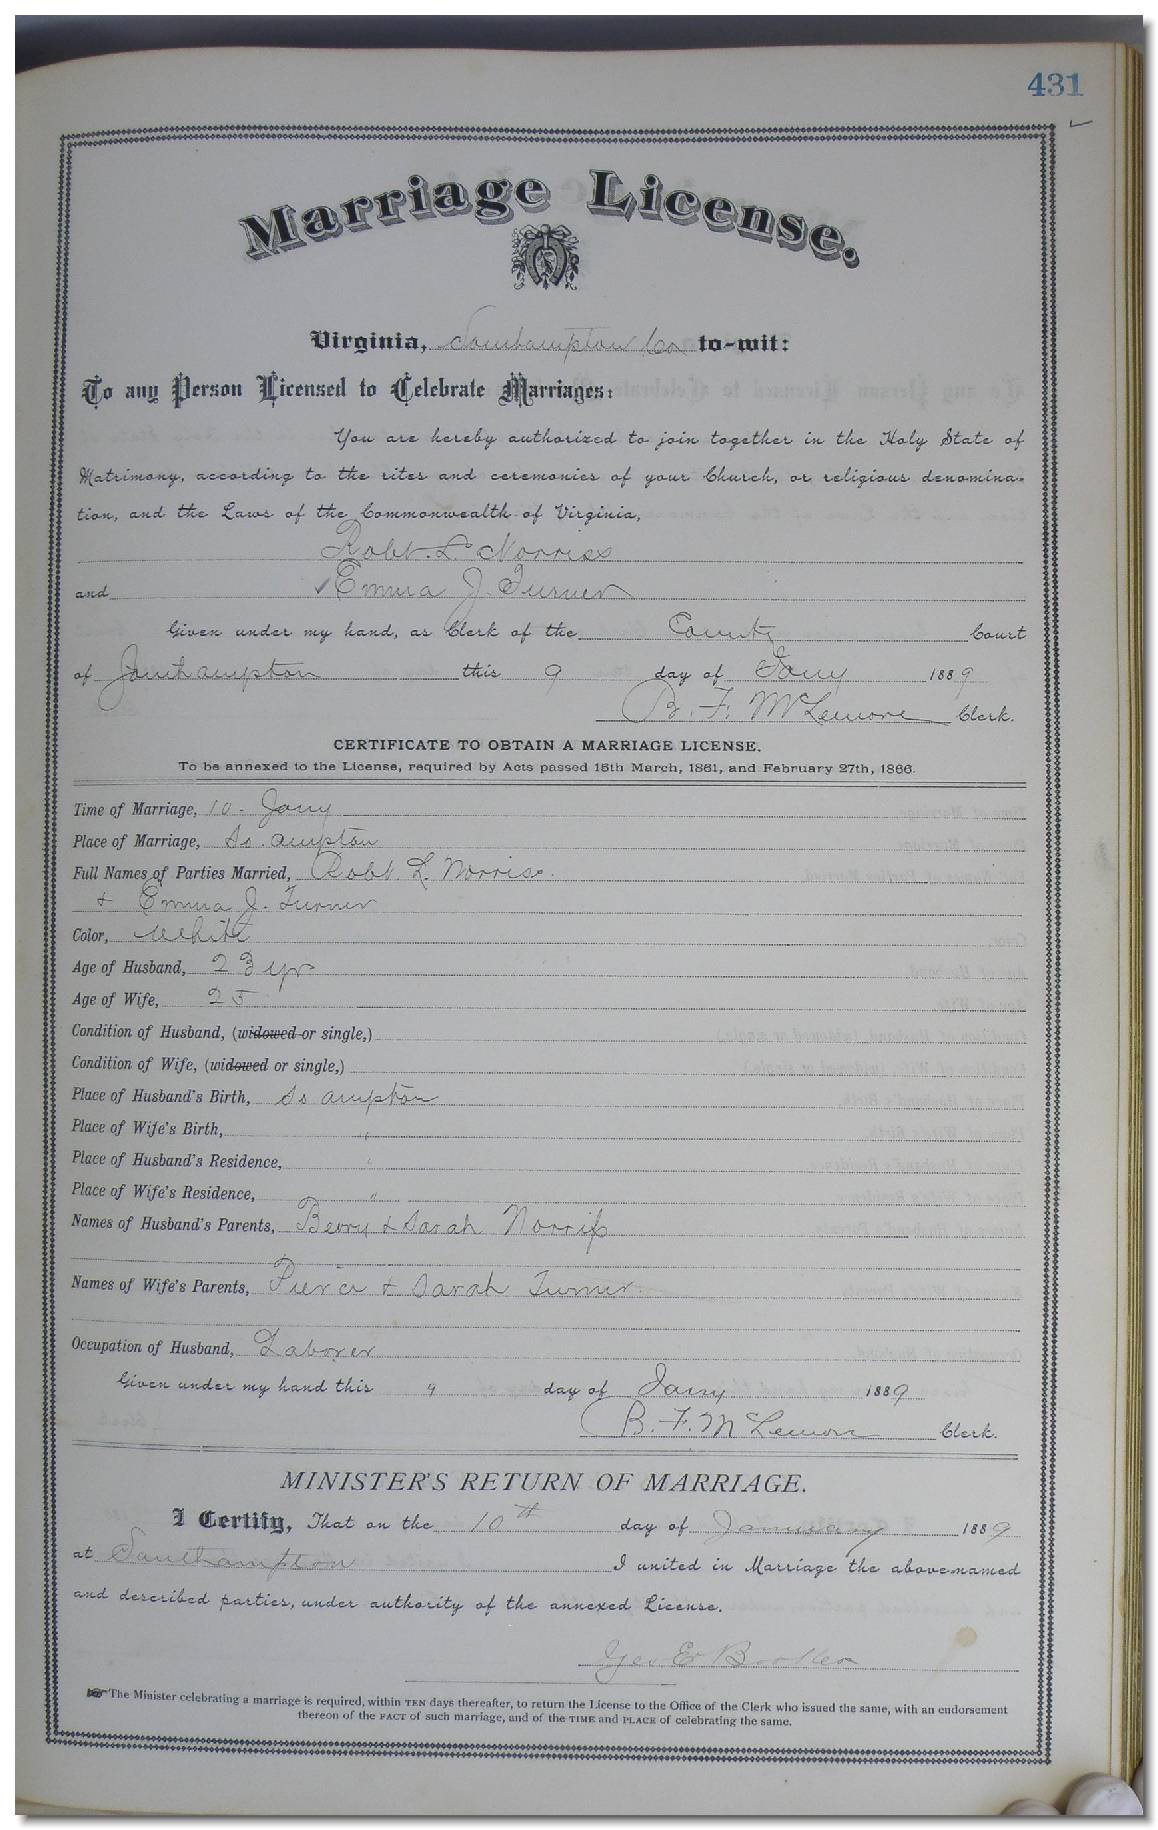 431
Marriage License.
Virginia, Southampton Co to-wit:
To any Person Licensed to Celebrate Marriages:
You are hereby authorized to join together in the Holy State of
Matrimony, according to the rites and ceremonies of your Church, or religious denomina-
tion, and the Laws of the Commonwealth of Virginia,
Robt. L. Norriss
and Emma J. Turner
Given under my hand, as Clerk of the County Court
of Southampton this 9 day of Jany 1889
B. F. McLemore Clerk.
CERTIFICATE TO OBTAIN A MARRIAGE LICENSE.
To be annexed to the License, required by Acts passed 15th March, 1861, and February 27th, 1866.
Time of Marriage, 10 - Jany
Place of Marriage, So. ampton
Full Names of Parties Married, Robt. L. Norriss.
+ Emma J. Turner
Color, White
Age of Husband, 23 yr
Age of Wife, 25
Condition of Husband, (widowed or single,)
Condition of Wife, (widowed or single,)
Place of Husband's Birth, So ampton
Place of Wife's Birth, "
Place of Husband's Residence, "
Place of Wife's Residence, "
Names of Husband's Parents, Berry + Sarah Norriss
Names of Wife's Parents, Pierce + Sarah Turner
Occupation of Husband, Laborer
Given under my hand this 9 day of Jany 1889
B. F. McLemore Clerk.
MINISTER'S RETURN OF MARRIAGE.
I Certify, That on the 10th day of January 1889
at Southampton I united in Marriage the above-named
and described parties, under authority of the annexed License.
Geo E Booker
The Minister celebrating a marriage is required, within TEN days thereafter, to return the License to the Office of the Clerk who issued the same, with an endorsement
thereon of the FACT of such marriage, and of the TIME and PLACE of celebrating the same.